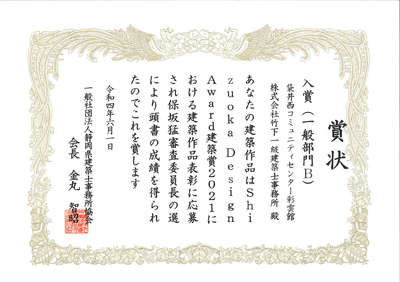 賞状
入賞(一般部門B)
袋井西コミュニティセンター彩雲館
株式会社竹下一級建築士事務所 殿
あなたの建築作品はShi
zuoka Design
Award建築賞2021に
おける建築作品表彰に応募
され保坂猛審査委員長の選
により頭書の成績を得られ
たのでこれを賞します
令和四年六月一日
一般社団法人静岡県建築士事務所協会
会長 金丸 智昭